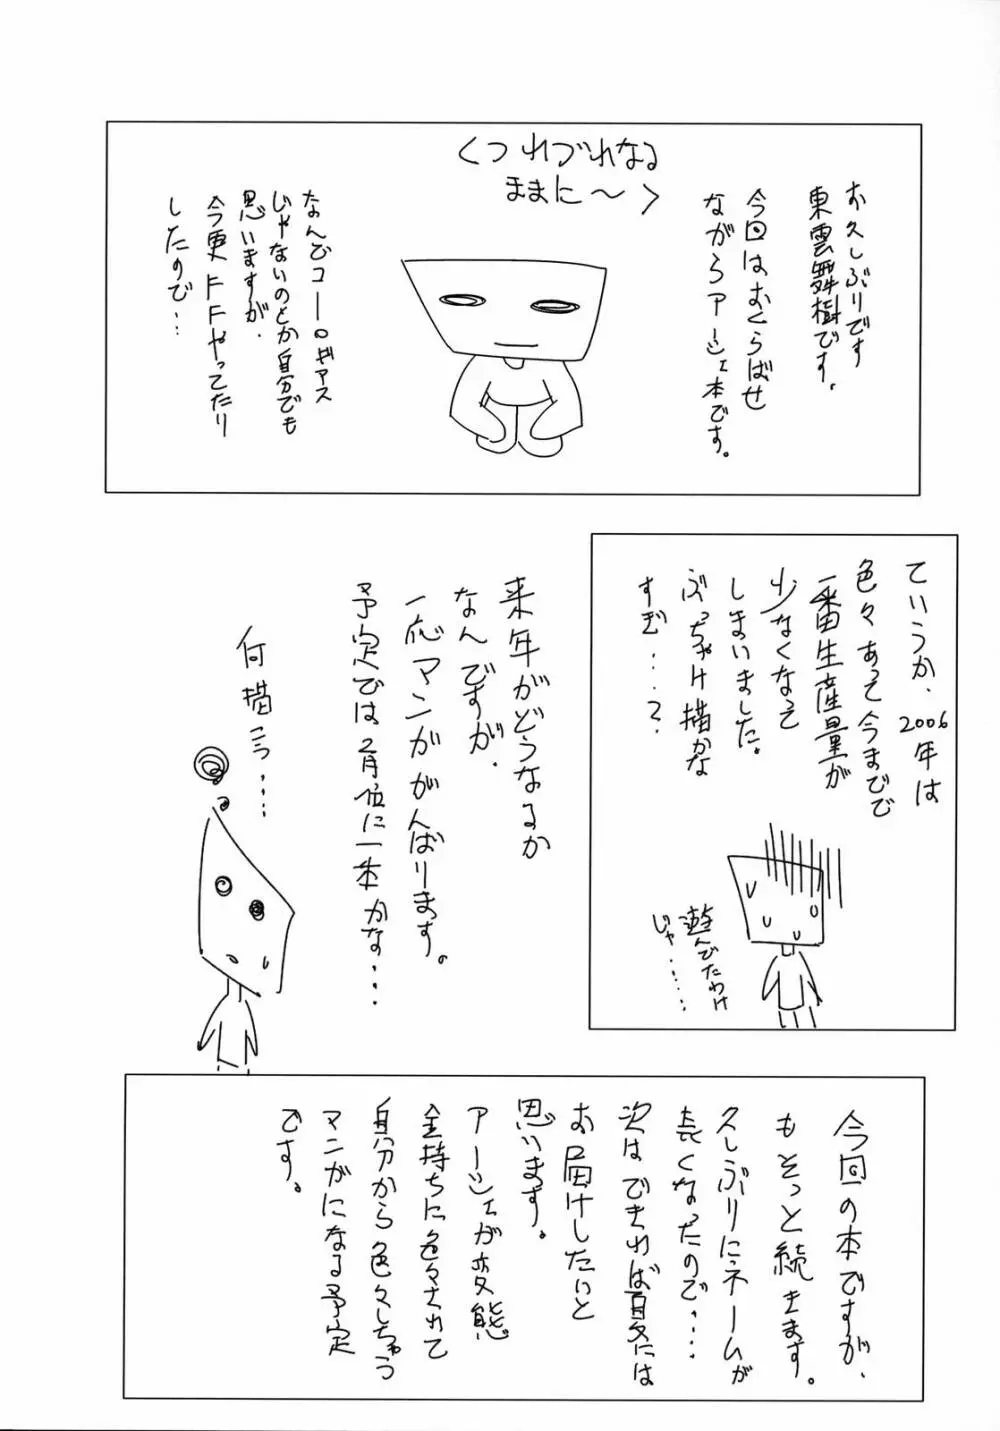 くつれづれなる
ままに～〉
お久しぶりです
東雲舞樹です。
今回はおくらばせ
ながらアーシェ本です。
なんでコードギアス
じゃないのとか自分でも
思いますが、
今更FFやってたり
したので…
ていうか、2006年は
色々あって今までで
一番生産量が
少なくなって
しまいました。
ぶっちゃけ描かな
すぎ…？
遊んでたわけ
じゃ……
来年がどうなるか
なんですが、
一応マンガがんばります。
予定では2月位に一本かな…
何描こう……
今回の本ですが、
もそっと続きます。
久しぶりにネームが
長くなったので…
次はできれば夏には
お届けしたいと
思います。
アーシェが変態
金持ちに色々されて
自分から色々しちゃう
マンガになる予定
です。